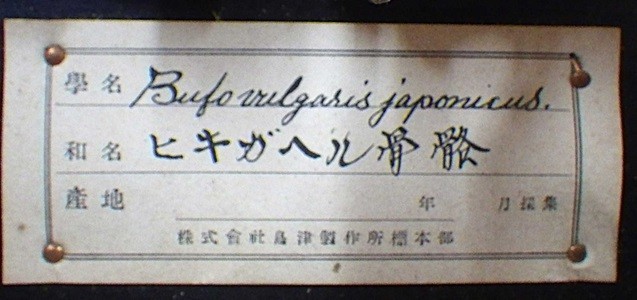 學名 Bufo vulgaris japonicus.
和名 ヒキガヘル骨骼
產地
年 月採集
株式會社島津製作所標本部